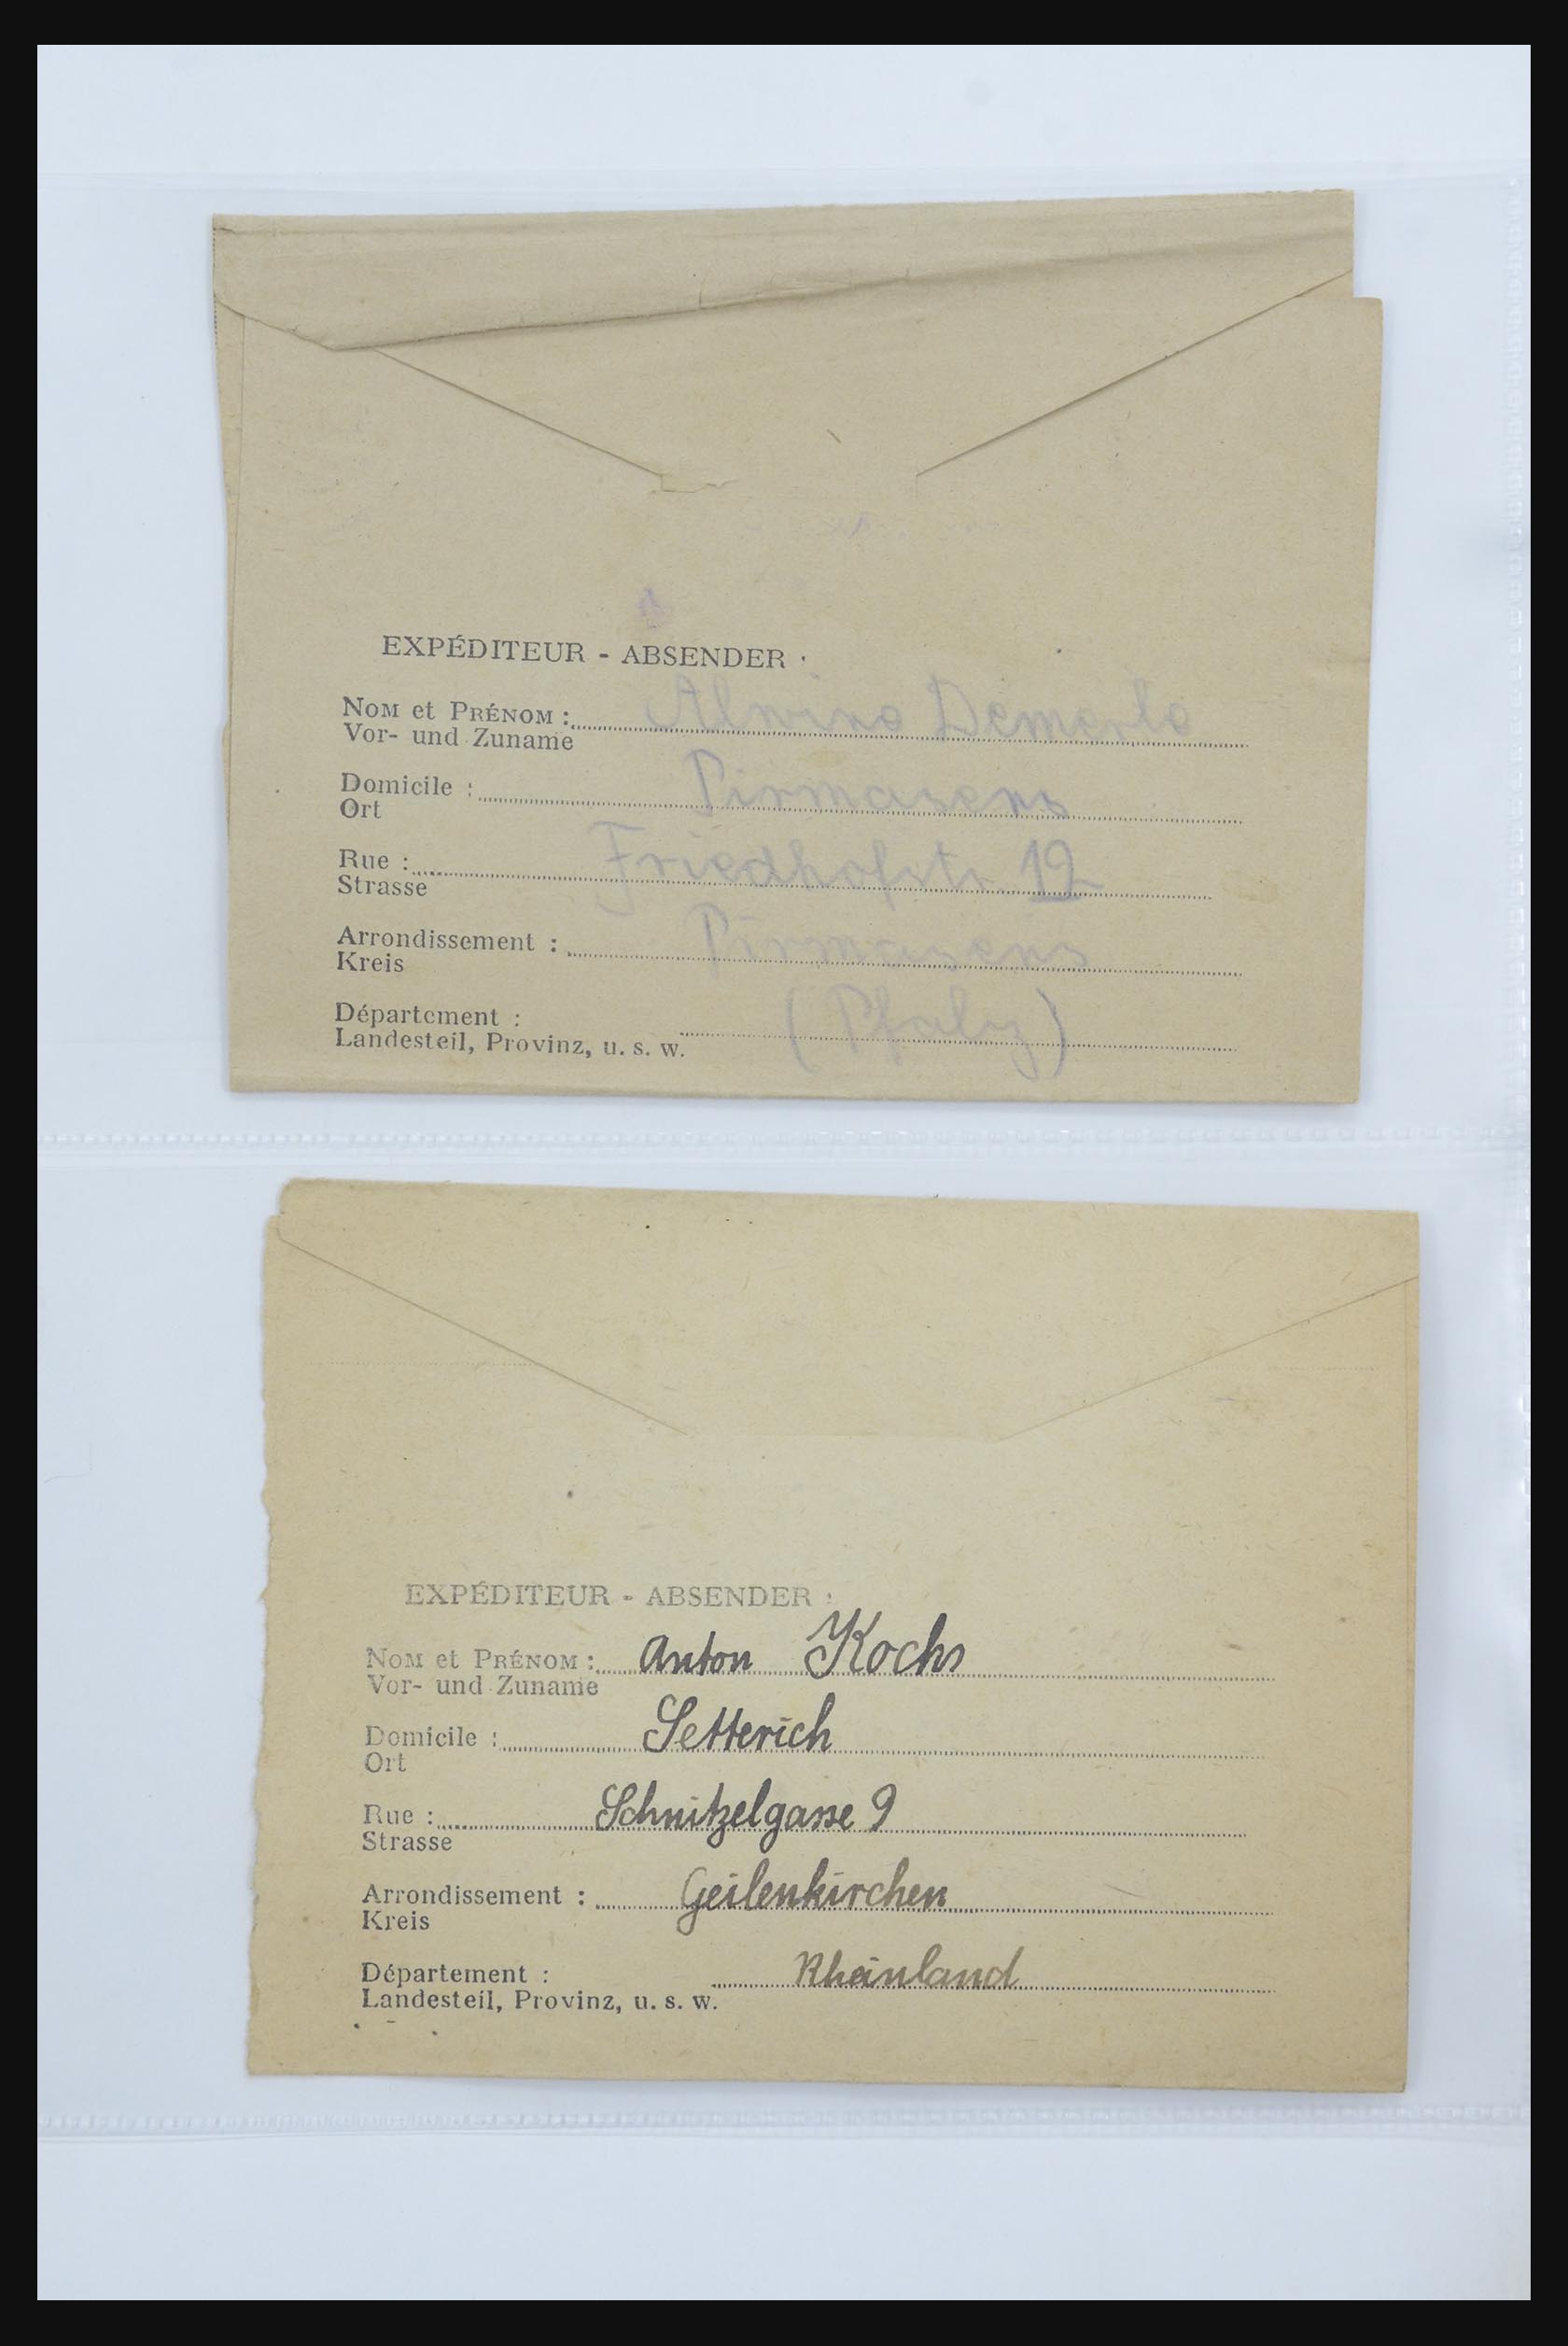 EXPÉDITEUR - ABSENDER :
NOM et PRÉNOM : Alwine Demerle
Vor- und Zuname
Domicile : Pirmasens
Ort
Rue : Friedhofstr. 12
Strasse
Arrondissement : Pirmasens
Kreis
Département :
Landesteil, Provinz, u. s. w. (Pfalz)
EXPÉDITEUR - ABSENDER :
NOM et PRÉNOM : Anton Kochs
Vor- und Zuname
Domicile : Setterich
Ort
Rue : Schnitzelgasse 9
Strasse
Arrondissement : Geilenkirchen
Kreis
Département : Rheinland
Landesteil, Provinz, u. s. w.